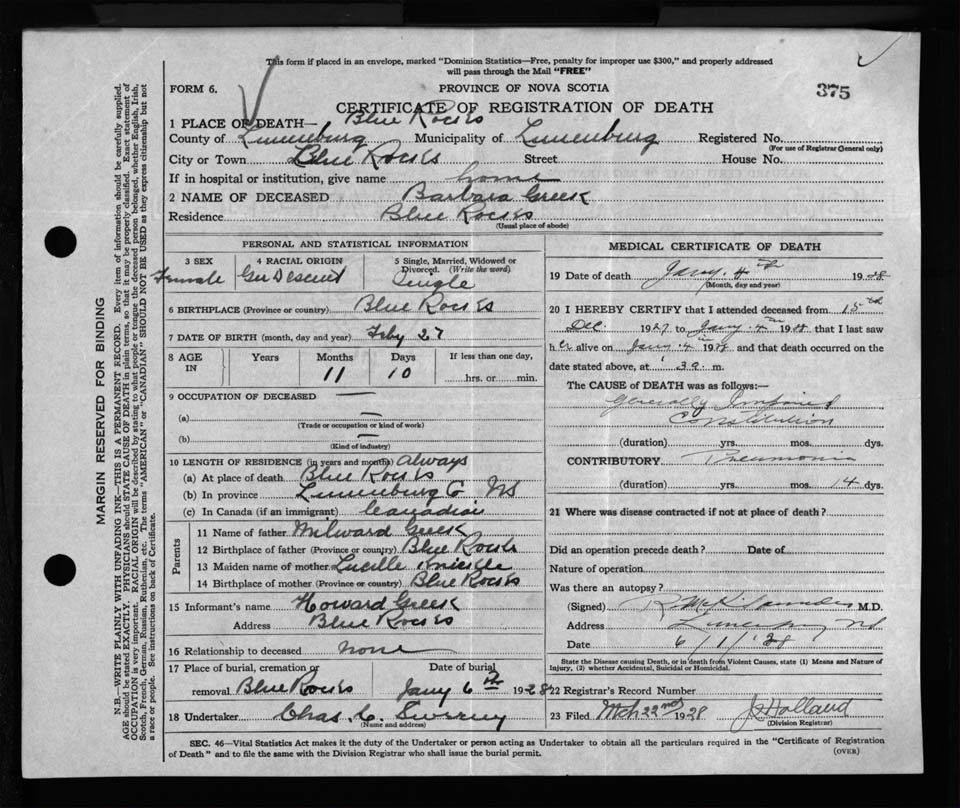 This form if placed in an envelope, marked "Dominion Statistics—Free, penalty for improper use $300," and properly addressed
will pass through the Mail "FREE"
FORM 6.
PROVINCE OF NOVA SCOTIA
375
CERTIFICATE OF REGISTRATION OF DEATH
1 PLACE OF DEATH— Blue Rocks
County of Lunenburg Municipality of Lunenburg Registered No.
(For use of Registrar General only)
City or Town Blue Rocks Street House No.
If in hospital or institution, give name home
2 NAME OF DECEASED Barbara Greek
Residence Blue Rocks
(Usual place of abode)
PERSONAL AND STATISTICAL INFORMATION
3 SEX
Female
4 RACIAL ORIGIN
Ger Descent
5 Single, Married, Widowed or
Divorced. (Write the word)
Single
6 BIRTHPLACE (Province or country) Blue Rocks
7 DATE OF BIRTH (month, day and year) Feby 27
8 AGE
IN
Years
Months
11
Days
10
If less than one day,
hrs. or min.
9 OCCUPATION OF DECEASED —
(a) —
(Trade or occupation or kind of work)
(b) —
(Kind of industry)
10 LENGTH OF RESIDENCE (in years and months) always
(a) At place of death Blue Rocks
(b) In province Lunenburg Co NS
(c) In Canada (if an immigrant) Canadian
Parents
11 Name of father Milward Greek
12 Birthplace of father (Province or country) Blue Rocks
13 Maiden name of mother Lucille
14 Birthplace of mother (Province or country) Blue Rocks
15 Informant's name Howard Greek
Address Blue Rocks
16 Relationship to deceased none
17 Place of burial, cremation or
removal Blue Rocks
Date of burial
Jany 6th 1928
18 Undertaker Chas. C. Sweeny
(Name and address)
MEDICAL CERTIFICATE OF DEATH
19 Date of death Jany. 4th 1928
(Month, day and year)
20 I HEREBY CERTIFY that I attended deceased from 15th
Dec. 1927 to Jany. 4th 1928 that I last saw
her alive on Jany. 4th 1928 and that death occurred on the
date stated above, at 3 a. m.
The CAUSE OF DEATH was as follows:—
Generally Impaired
Constitution
(duration) yrs. mos. dys.
CONTRIBUTORY Pneumonia
(duration) yrs. mos. 14 dys.
21 Where was disease contracted if not at place of death?
Did an operation precede death? Date of
Nature of operation
Was there an autopsy?
(Signed) R. McK Saunders M.D.
Address Lunenburg NS
Date 6/1/28
State the Disease causing Death, or in death from Violent Causes, state (1) Means and Nature of
Injury, (2) whether Accidental, Suicidal or Homicidal.
22 Registrar's Record Number
23 Filed Mch 22nd 1928 J Holland
(Division Registrar)
SEC. 46—Vital Statistics Act makes it the duty of the Undertaker or person acting as Undertaker to obtain all the particulars required in the "Certificate of Registration
of Death" and to file the same with the Division Registrar who shall issue the burial permit.
(OVER)
MARGIN RESERVED FOR BINDING
N.B.—WRITE PLAINLY WITH UNFADING INK—THIS IS A PERMANENT RECORD. Every item of information should be carefully supplied.
AGE should be stated EXACTLY. PHYSICIANS should STATE CAUSE OF DEATH in plain terms, so that it may be properly classified. Exact statement of
OCCUPATION is very important. RACIAL ORIGIN will be described by stating to what people or tongue the deceased person belonged, whether English, Irish,
Scotch, French, German, Russian, Ruthenian, etc. The terms "AMERICAN" or "CANADIAN" SHOULD NOT BE USED as they express citizenship but not
a race or people. See instructions on back of Certificate.